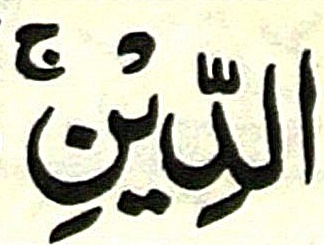 الدِّيْنِۚ